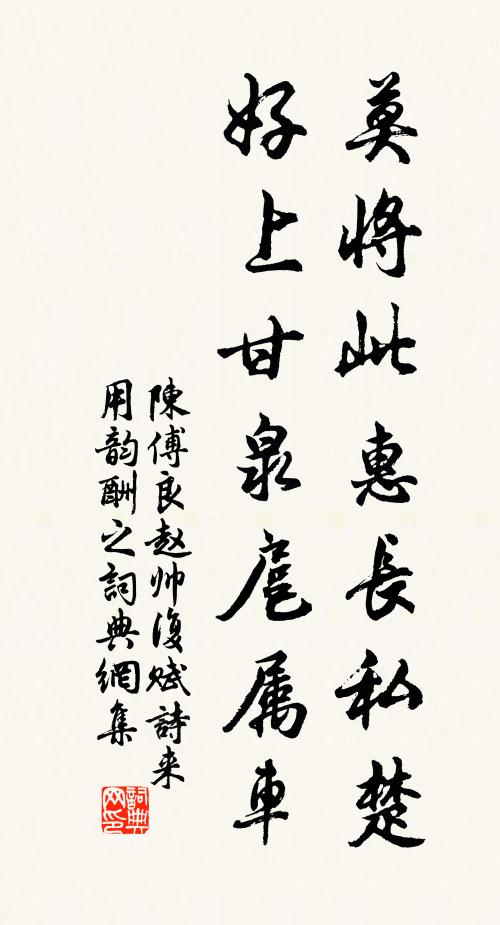 莫將此惠長私楚
好上甘泉扈属車
陳傅良赵帅復赋詩来
用韵酬之詞典網集
詞典
网印